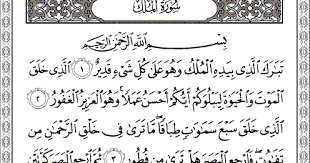 سورة الملك
بِسْمِ اللَّهِ الرَّحْمَٰنِ الرَّحِيمِ
تَبَٰرَكَ الَّذِي بِيَدِهِ الْمُلْكُ وَهُوَ عَلَىٰ كُلِّ شَيْءٍ قَدِيرٌ ١ الَّذِي خَلَقَ
الْمَوْتَ وَالْحَيَوٰةَ لِيَبْلُوَكُمْ أَيُّكُمْ أَحْسَنُ عَمَلًا وَهُوَ الْعَزِيزُ الْغَفُورُ ٢
الَّذِي خَلَقَ سَبْعَ سَمَٰوَٰتٍ طِبَاقًا مَّا تَرَىٰ فِي خَلْقِ الرَّحْمَٰنِ مِن
تَفَٰوُتٍ فَارْجِعِ الْبَصَرَ هَلْ تَرَىٰ مِن فُطُورٍ ٣ ثُمَّ ارْجِعِ الْبَصَرَ كَرَّتَيْنِ